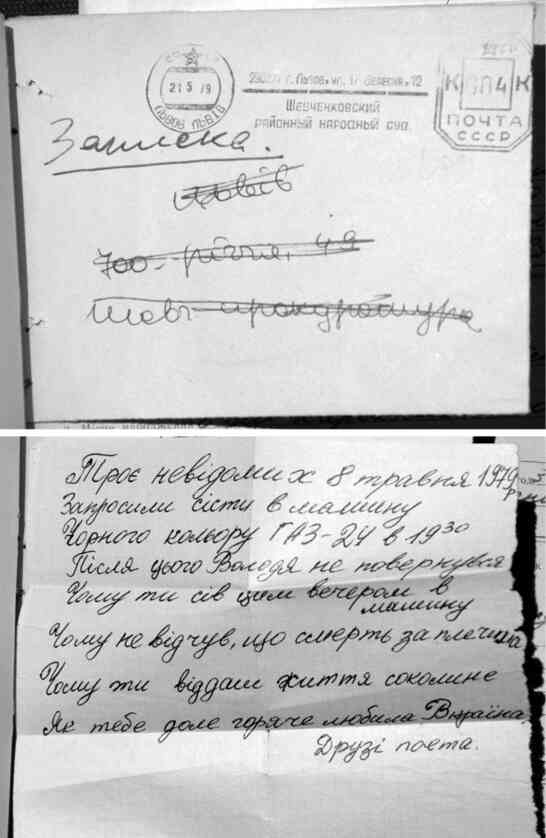 21 5 79
ЛЬВІВ
г. Львов, ул. 17 Вересня, 12
ШЕВЧЕНКОВСКИЙ
РАЙОННЫЙ НАРОДНЫЙ СУД
К 4 К
ПОЧТА
СССР
Записка.
Львів
700-річчя, 49
Шевч прокуратура
Троє невідомих 8 травня 1979 р.
Запросили сісти в машину
Чорного кольору ГАЗ-24 в 19 30
Після цього Володя не повернувся
Чому ти сів цим вечером в
машину
Чому не відчув, що смерть за плечима
Чому ти віддал життя соколине
Як тебе доле горяче любила Вкраїна.
Друзі поета.